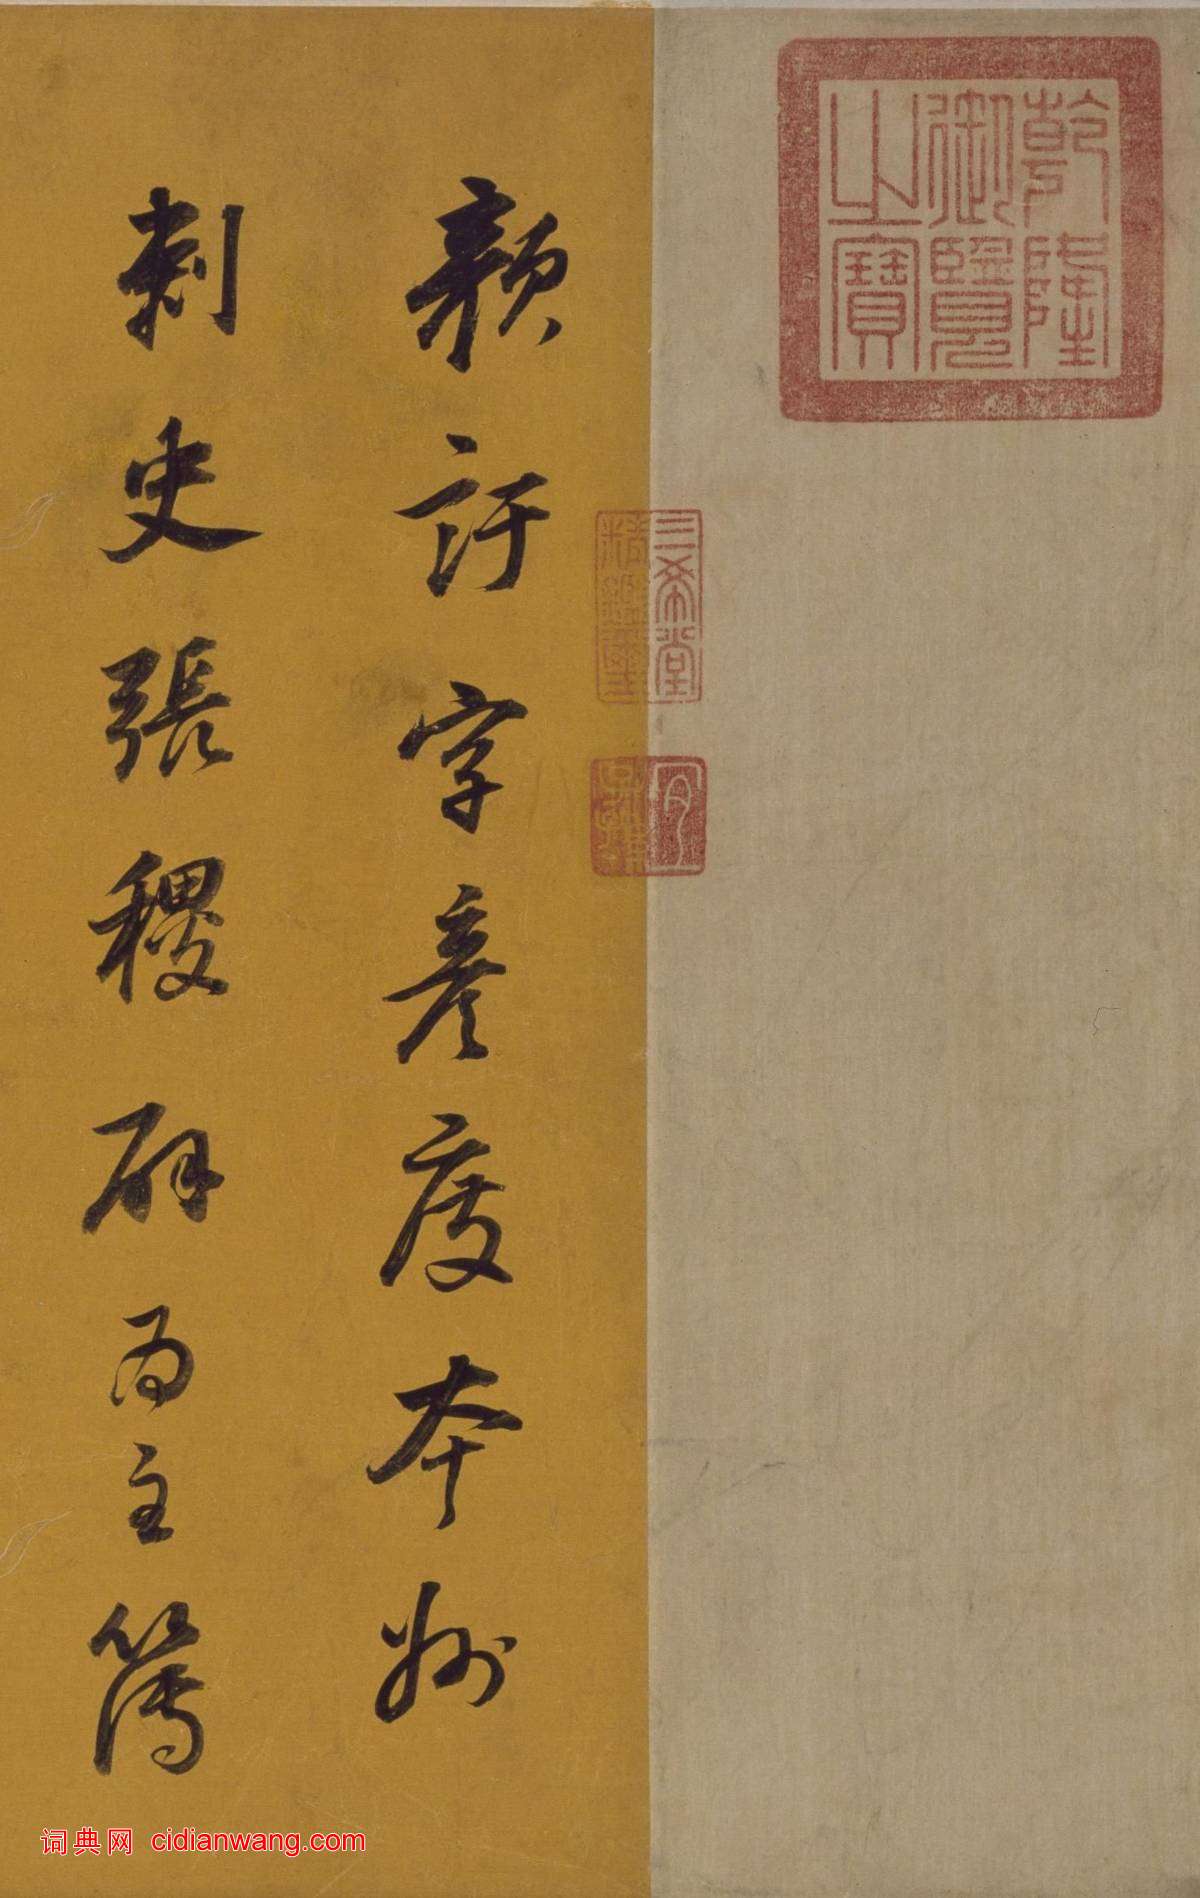 乾隆
御覽
之寶
三希堂
精鑑璽
宜
子孫
顏訏字彥度本州
刺史張稷辟為主簿
词典网 cidianwang.com